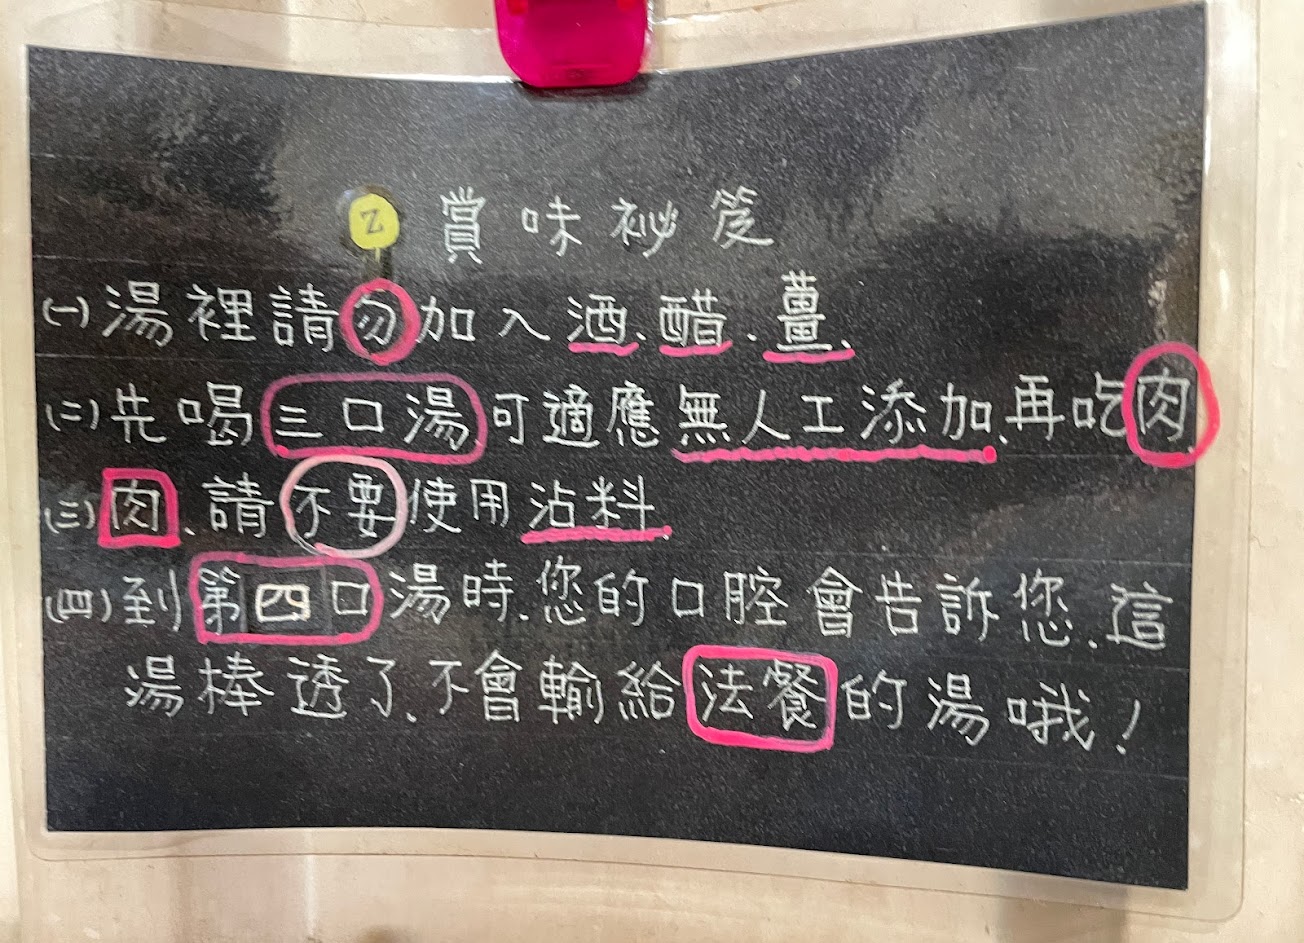 Z 賞味祕笈
(一)湯裡請勿加入酒、醋、薑、
(二)先喝三口湯可適應無人工添加、再吃肉
(三)肉、請不要使用沾料、
(四)到第四口湯時、您的口腔會告訴您、這
湯棒透了、不會輸給法餐的湯哦!